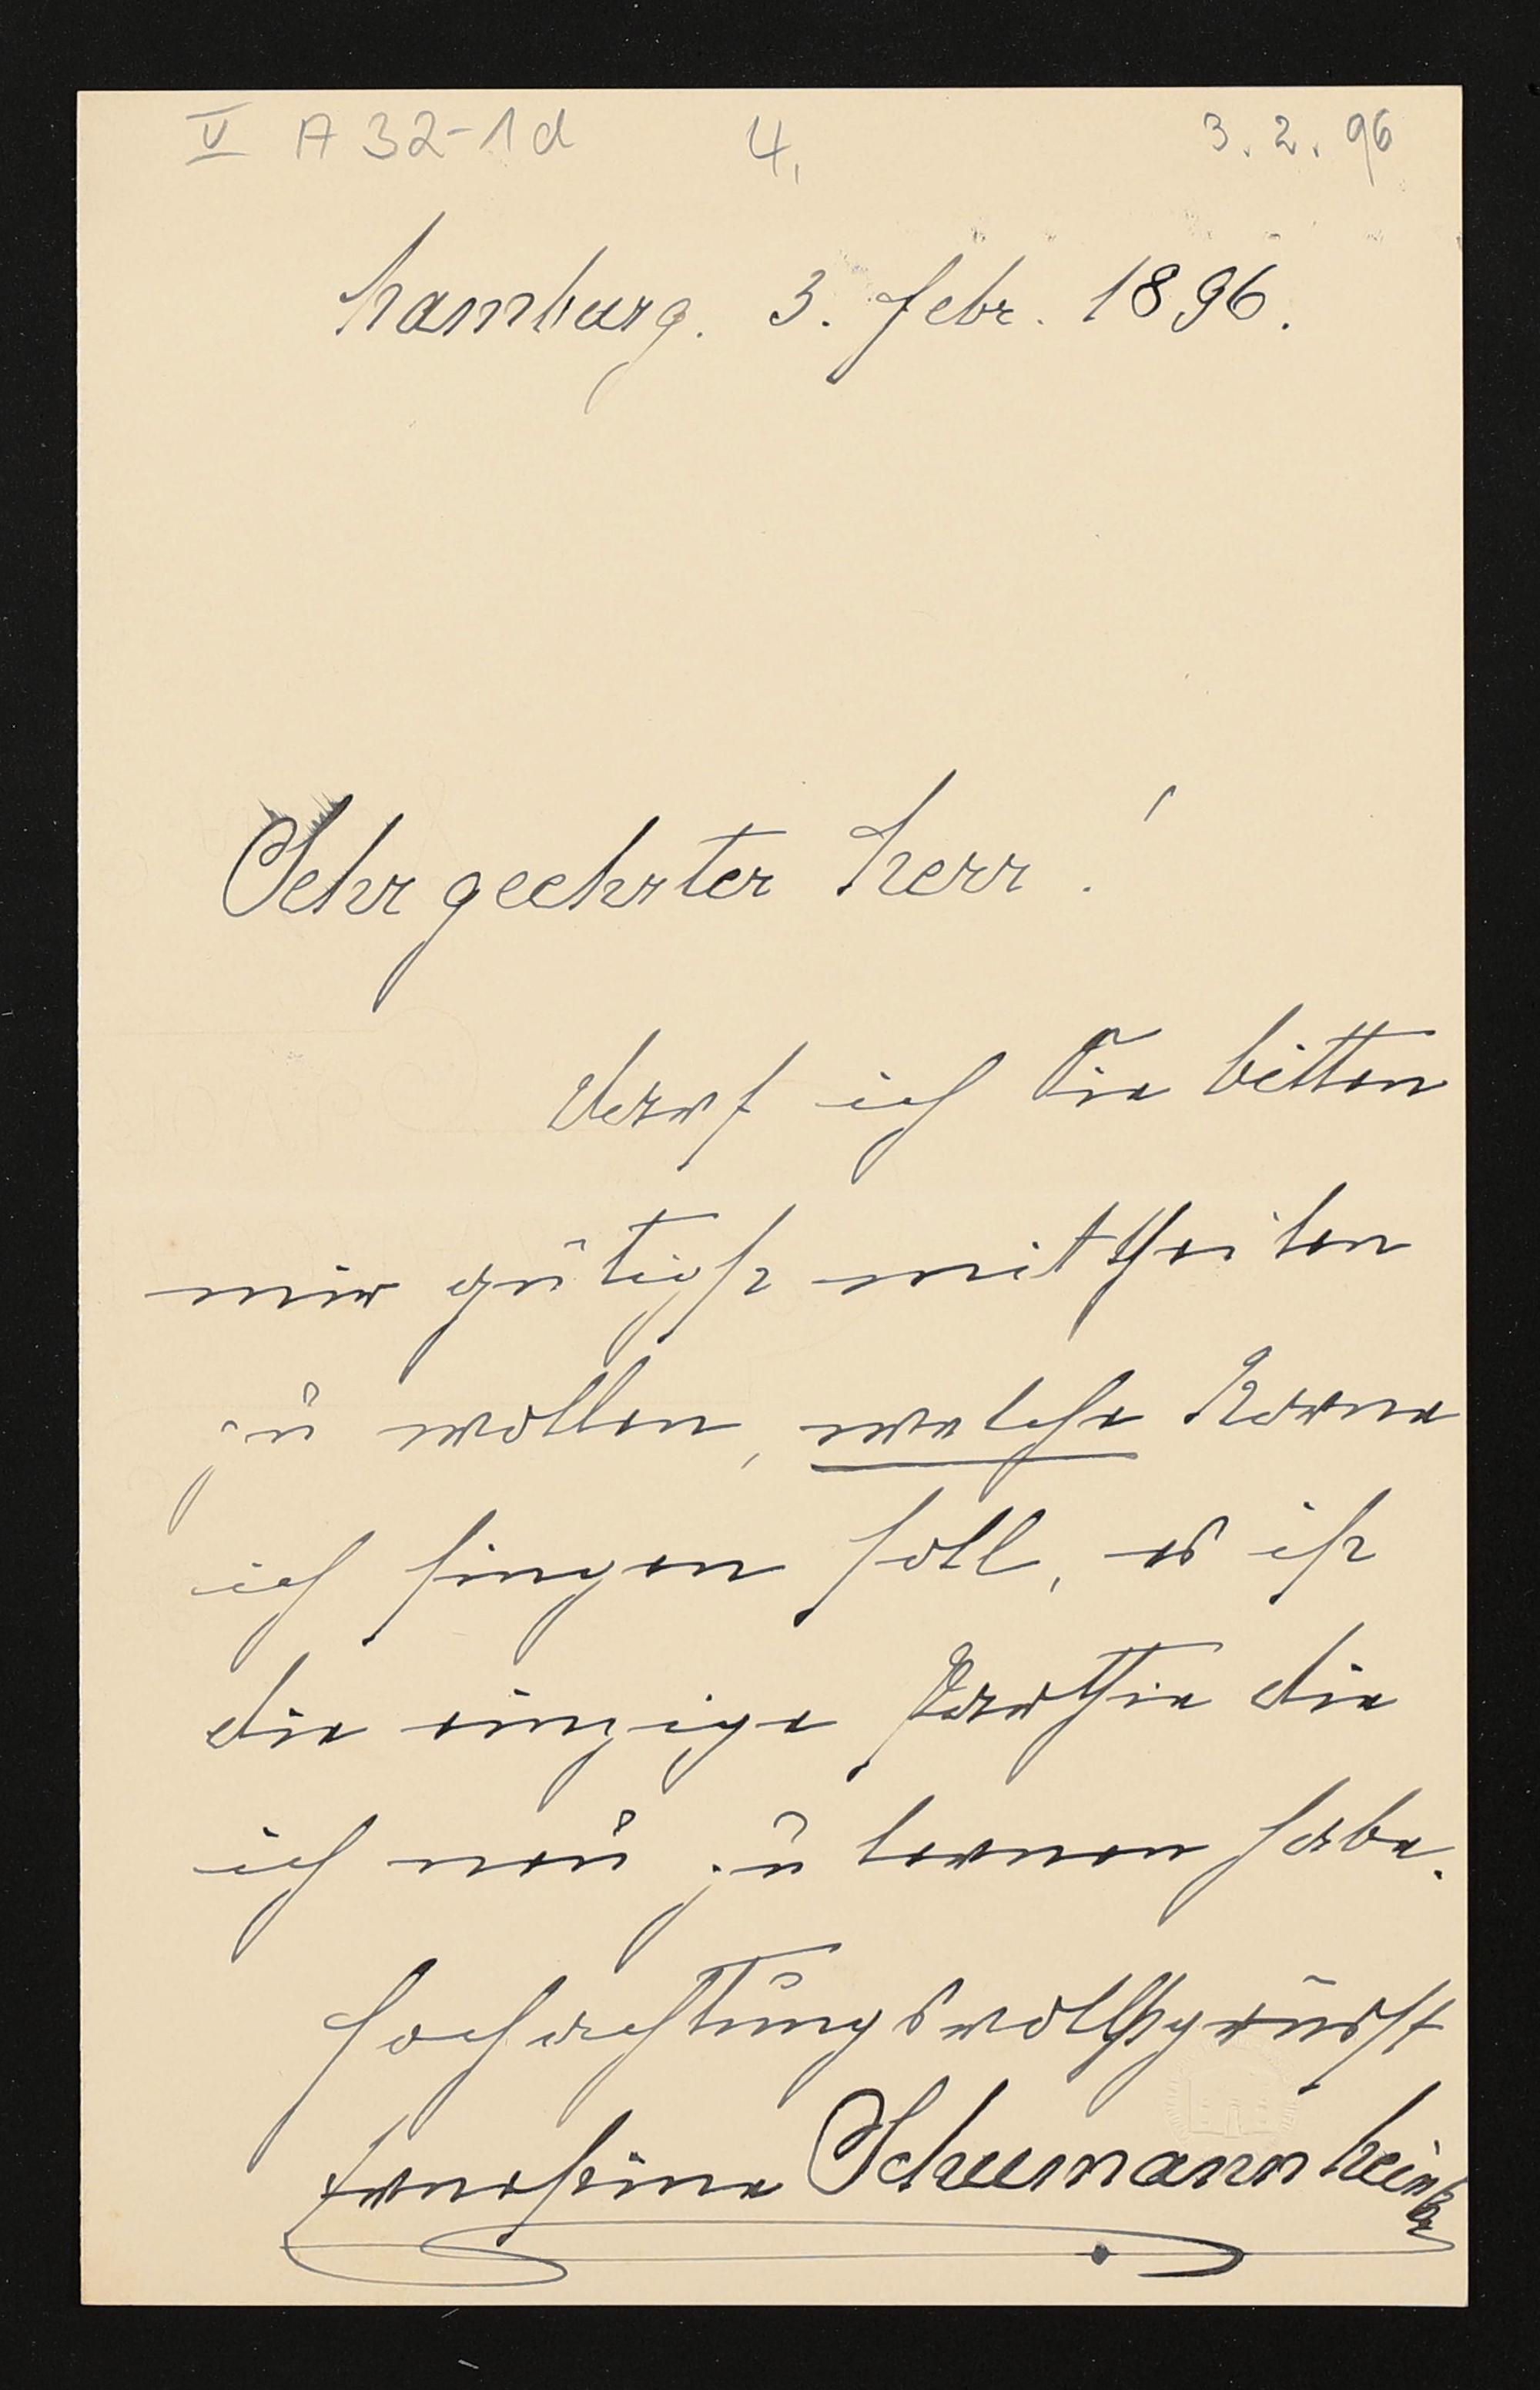 V A 32-1d 4. 3. 2. 96
Hamburg. 3. Febr. 1896.
Sehr geehrter Herr!
Darf ich Sie bitten
mir gütigst mittheilen
zu wollen, welche Norne
ich singen soll, es ist
die einzige Parthie die
ich neu zu lernen habe.
Hochachtungsvollst grüßt
Ernestine Schumann Heink